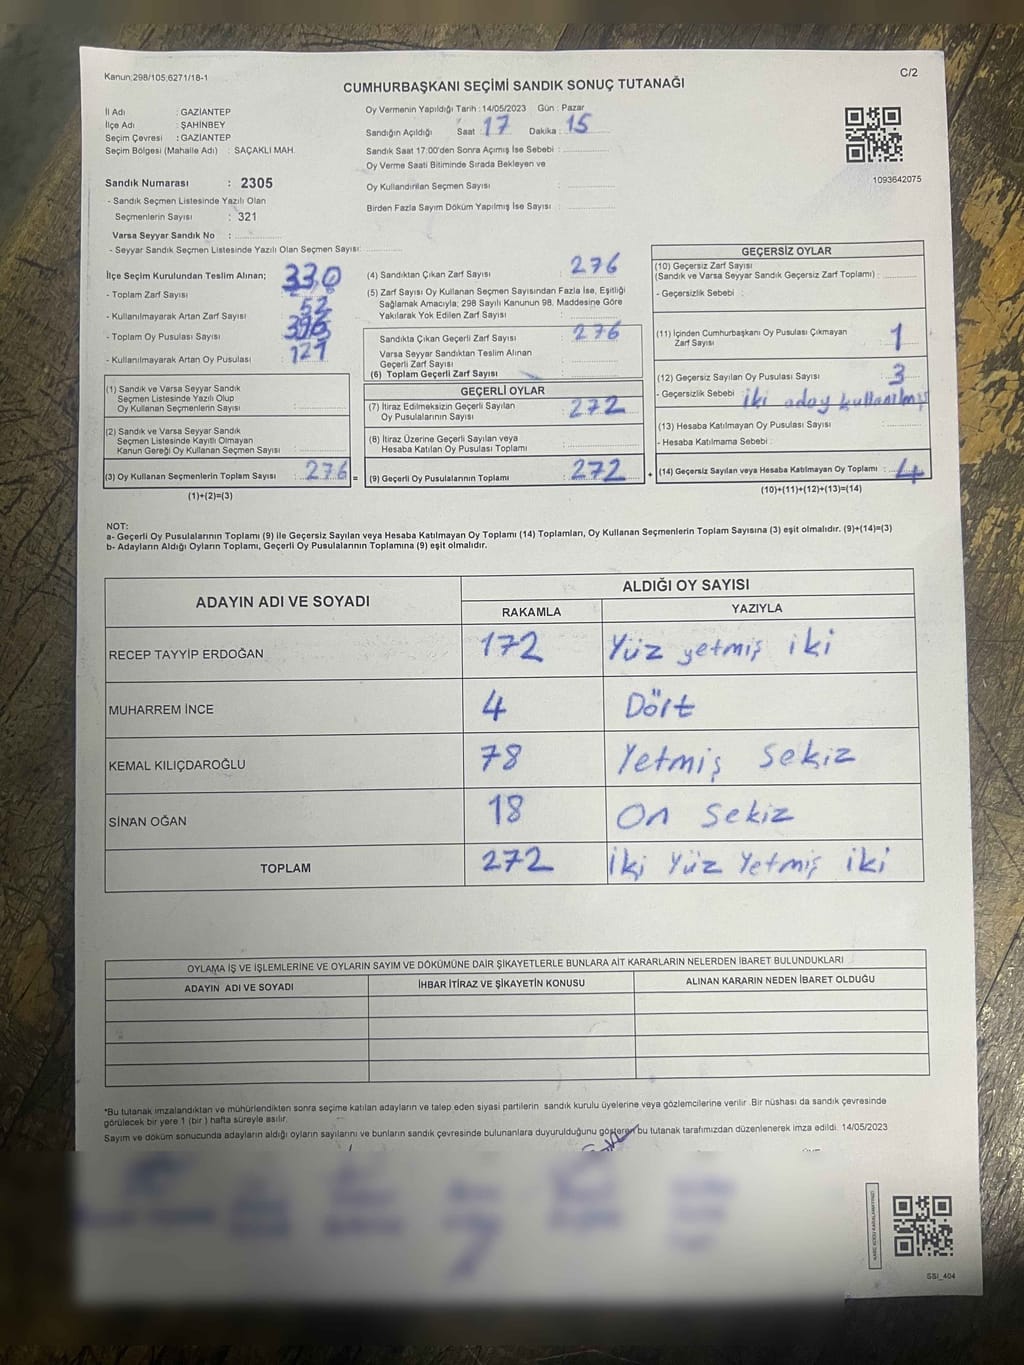 Kanun;298/105;6271/18-1
C/2
CUMHURBAŞKANI SEÇİMİ SANDIK SONUÇ TUTANAĞI
İl Adı : GAZİANTEP
İlçe Adı : ŞAHİNBEY
Seçim Çevresi : GAZİANTEP
Seçim Bölgesi (Mahalle Adı) : SAÇAKLI MAH.
Oy Vermenin Yapıldığı Tarih : 14/05/2023 Gün : Pazar
Sandığın Açıldığı Saat : 17 Dakika : 15
Sandık Saat 17:00'den Sonra Açımış İse Sebebi :
Oy Verme Saati Bitiminde Sırada Bekleyen ve
Oy Kullandırılan Seçmen Sayısı :
Birden Fazla Sayım Döküm Yapılmış İse Sayısı :
1093642075
Sandık Numarası : 2305
- Sandık Seçmen Listesinde Yazılı Olan
Seçmenlerin Sayısı : 321
Varsa Seyyar Sandık No :
- Seyyar Sandık Seçmen Listesinde Yazılı Olan Seçmen Sayısı:
İlçe Seçim Kurulundan Teslim Alınan;
- Toplam Zarf Sayısı 330
- Kullanılmayarak Artan Zarf Sayısı 52
- Toplam Oy Pusulası Sayısı
- Kullanılmayarak Artan Oy Pusulası
(1) Sandık ve Varsa Seyyar Sandık
Seçmen Listesinde Yazılı Olup
Oy Kullanan Seçmenlerin Sayısı :
(2) Sandık ve Varsa Seyyar Sandık
Seçmen Listesinde Kayıtlı Olmayan
Kanun Gereği Oy Kullanan Seçmen Sayısı :
(3) Oy Kullanan Seçmenlerin Toplam Sayısı : 276 =
(1)+(2)=(3)
(4) Sandıktan Çıkan Zarf Sayısı : 276
(5) Zarf Sayısı Oy Kullanan Seçmen Sayısından Fazla İse, Eşitliği
Sağlamak Amacıyla; 298 Sayılı Kanunun 98. Maddesine Göre
Yakılarak Yok Edilen Zarf Sayısı :
Sandıkta Çıkan Geçerli Zarf Sayısı : 276
Varsa Seyyar Sandıktan Teslim Alınan
Geçerli Zarf Sayısı :
(6) Toplam Geçerli Zarf Sayısı :
GEÇERLİ OYLAR
(7) İtiraz Edilmeksizin Geçerli Sayılan
Oy Pusulalarının Sayısı : 272
(8) İtiraz Üzerine Geçerli Sayılan veya
Hesaba Katılan Oy Pusulası Toplamı :
(9) Geçerli Oy Pusulalarının Toplamı : 272 +
GEÇERSİZ OYLAR
(10) Geçersiz Zarf Sayısı
(Sandık ve Varsa Seyyar Sandık Geçersiz Zarf Toplamı) :
- Geçersizlik Sebebi :
(11) İçinden Cumhurbaşkanı Oy Pusulası Çıkmayan
Zarf Sayısı : 1
(12) Geçersiz Sayılan Oy Pusulası Sayısı : 3
- Geçersizlik Sebebi : iki aday kullanılmış
(13) Hesaba Katılmayan Oy Pusulası Sayısı :
- Hesaba Katılmama Sebebi :
(14) Geçersiz Sayılan veya Hesaba Katılmayan Oy Toplamı : 4
(10)+(11)+(12)+(13)=(14)
NOT:
a- Geçerli Oy Pusulalarının Toplamı (9) ile Geçersiz Sayılan veya Hesaba Katılmayan Oy Toplamı (14) Toplamları, Oy Kullanan Seçmenlerin Toplam Sayısına (3) eşit olmalıdır. (9)+(14)=(3)
b- Adayların Aldığı Oyların Toplamı, Geçerli Oy Pusulalarının Toplamına (9) eşit olmalıdır.
ADAYIN ADI VE SOYADI
ALDIĞI OY SAYISI
RAKAMLA YAZIYLA
RECEP TAYYİP ERDOĞAN 172 Yüz yetmiş iki
MUHARREM İNCE 4 Dört
KEMAL KILIÇDAROĞLU 78 Yetmiş Sekiz
SİNAN OĞAN 18 On Sekiz
TOPLAM 272 İki Yüz Yetmiş iki
OYLAMA İŞ VE İŞLEMLERİNE VE OYLARIN SAYIM VE DÖKÜMÜNE DAİR ŞİKAYETLERLE BUNLARA AİT KARARLARIN NELERDEN İBARET BULUNDUKLARI
ADAYIN ADI VE SOYADI İHBAR İTİRAZ VE ŞİKAYETİN KONUSU ALINAN KARARIN NEDEN İBARET OLDUĞU
*Bu tutanak imzalandıktan ve mühürlendikten sonra seçime katılan adayların ve talep eden siyasi partilerin sandık kurulu üyelerine veya gözlemcilerine verilir .Bir nüshası da sandık çevresinde
görülecek bir yere 1 (bir ) hafta süreyle asılır.
Sayım ve döküm sonucunda adayların aldığı oyların sayılarını ve bunların sandık çevresinde bulunanlara duyurulduğunu gösteren bu tutanak tarafımızdan düzenlenerek imza edildi. 14/05/2023
SSI_404